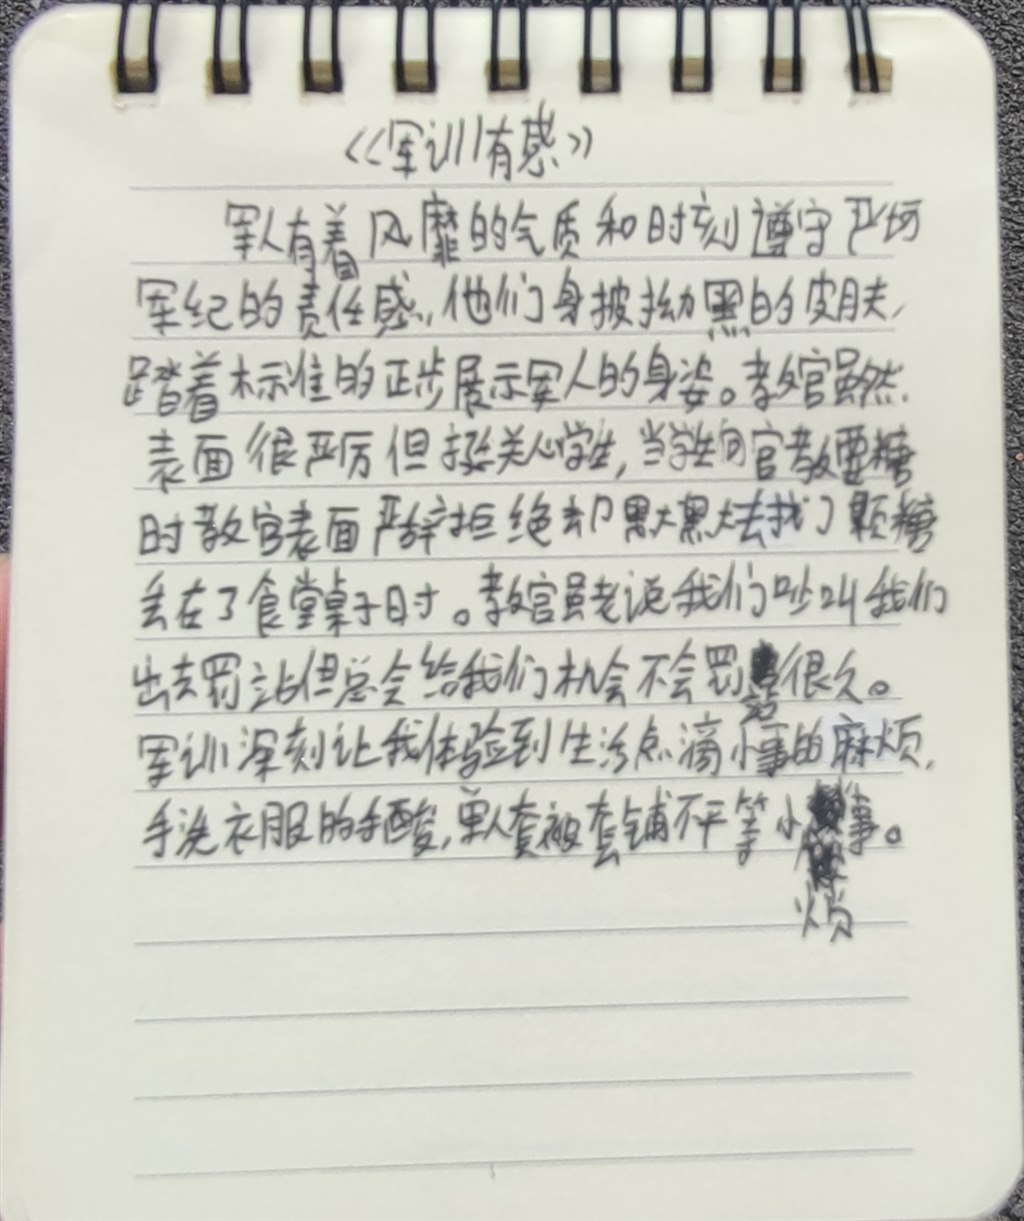 《军训有感》
军人有着风靡的气质和时刻遵守严厉
军纪的责任感,他们身披拗黑的皮肤,
踏着标准的正步展示军人的身姿。教官虽然
表面很严厉但挺关心学生,当学生向官教要糖
时教官表面严辞拒绝却默默去找了颗糖
丢在了食堂桌子时。教官虽老说我们吵叫我们
出去罚站但总会给我们机会不会罚站很久。
军训深刻让我体验到生活点滴小事的麻烦,
手洗衣服的手酸,单人套被套铺不平等小烦事。